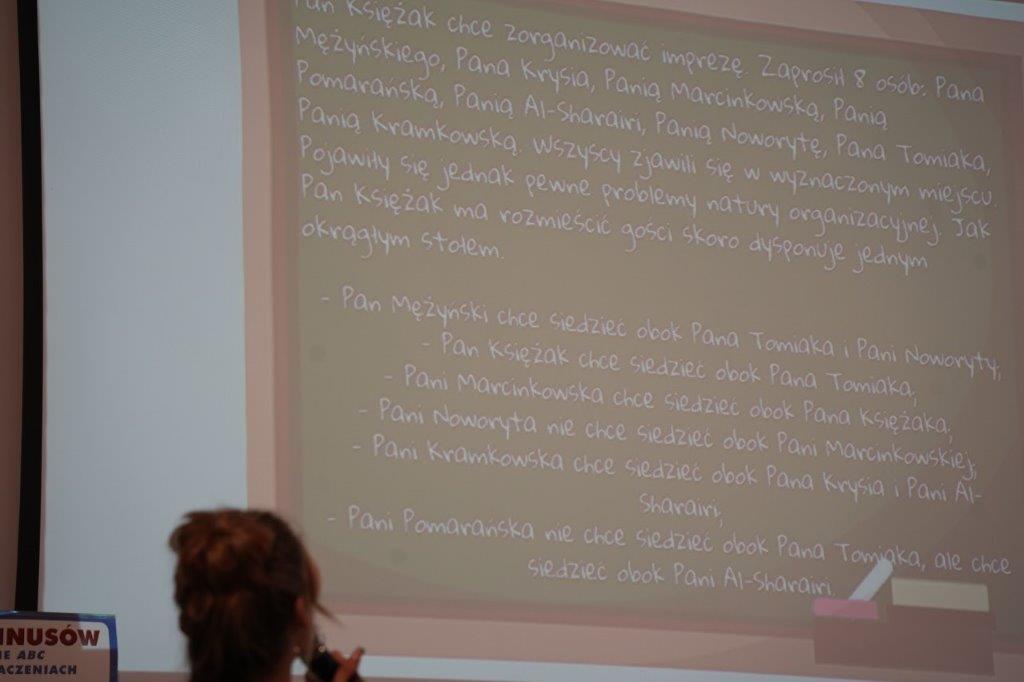 Pan Księżak chce zorganizować imprezę. Zaprosił 8 osób: Pana
Mężyńskiego, Pana Krysia, Panią Marcinkowską, Panią
Pomarańską, Panią Al-Sharairi, Panią Noworytę, Pana Tomiaka,
Panią Kramkowską. Wszyscy zjawili się w wyznaczonym miejscu.
Pojawiły się jednak pewne problemy natury organizacyjnej. Jak
Pan Księżak ma rozmieścić gości skoro dysponuje jednym
okrągłym stołem.
- Pan Mężyński chce siedzieć obok Pana Tomiaka i Pani Noworyty,
- Pan Księżak chce siedzieć obok Pana Tomiaka,
- Pani Marcinkowska chce siedzieć obok Pana Księżaka,
- Pani Noworyta nie chce siedzieć obok Pani Marcinkowskiej,
- Pani Kramkowska chce siedzieć obok Pana Krysia i Pani Al-
Sharairi,
- Pani Pomarańska nie chce siedzieć obok Pana Tomiaka, ale chce
siedzieć obok Pani Al-Sharairi.
INUSÓW
IE ABC
ACZENIACH